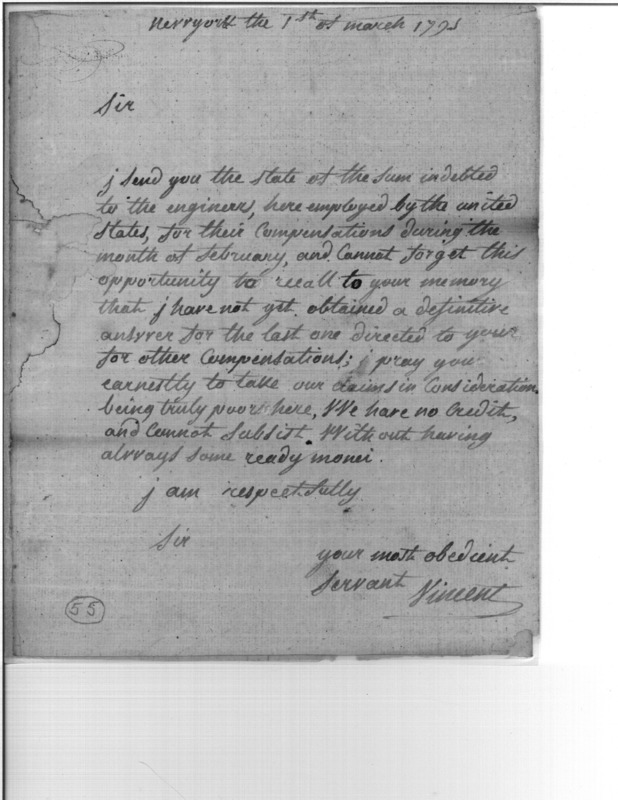 Nevvyork the 1st of march 1795
Sir
j send you the state of the sum indebted
to the engineers, here employed by the united
states, for their Compensations during the
month of february, and Cannot forget this
opportunity to recall to your memory
that j have not yet obtained a definitive
ansvver for the last one directed to your
for other Compensations; j pray you
earnestly to take our claims in Consideration.
being truly poors here, VVe have no Credit,
and Cannot Subsist VVithout having
alvvays some ready monei.
j am respectfully
Sir
your most obedient
Servant Vincent
55